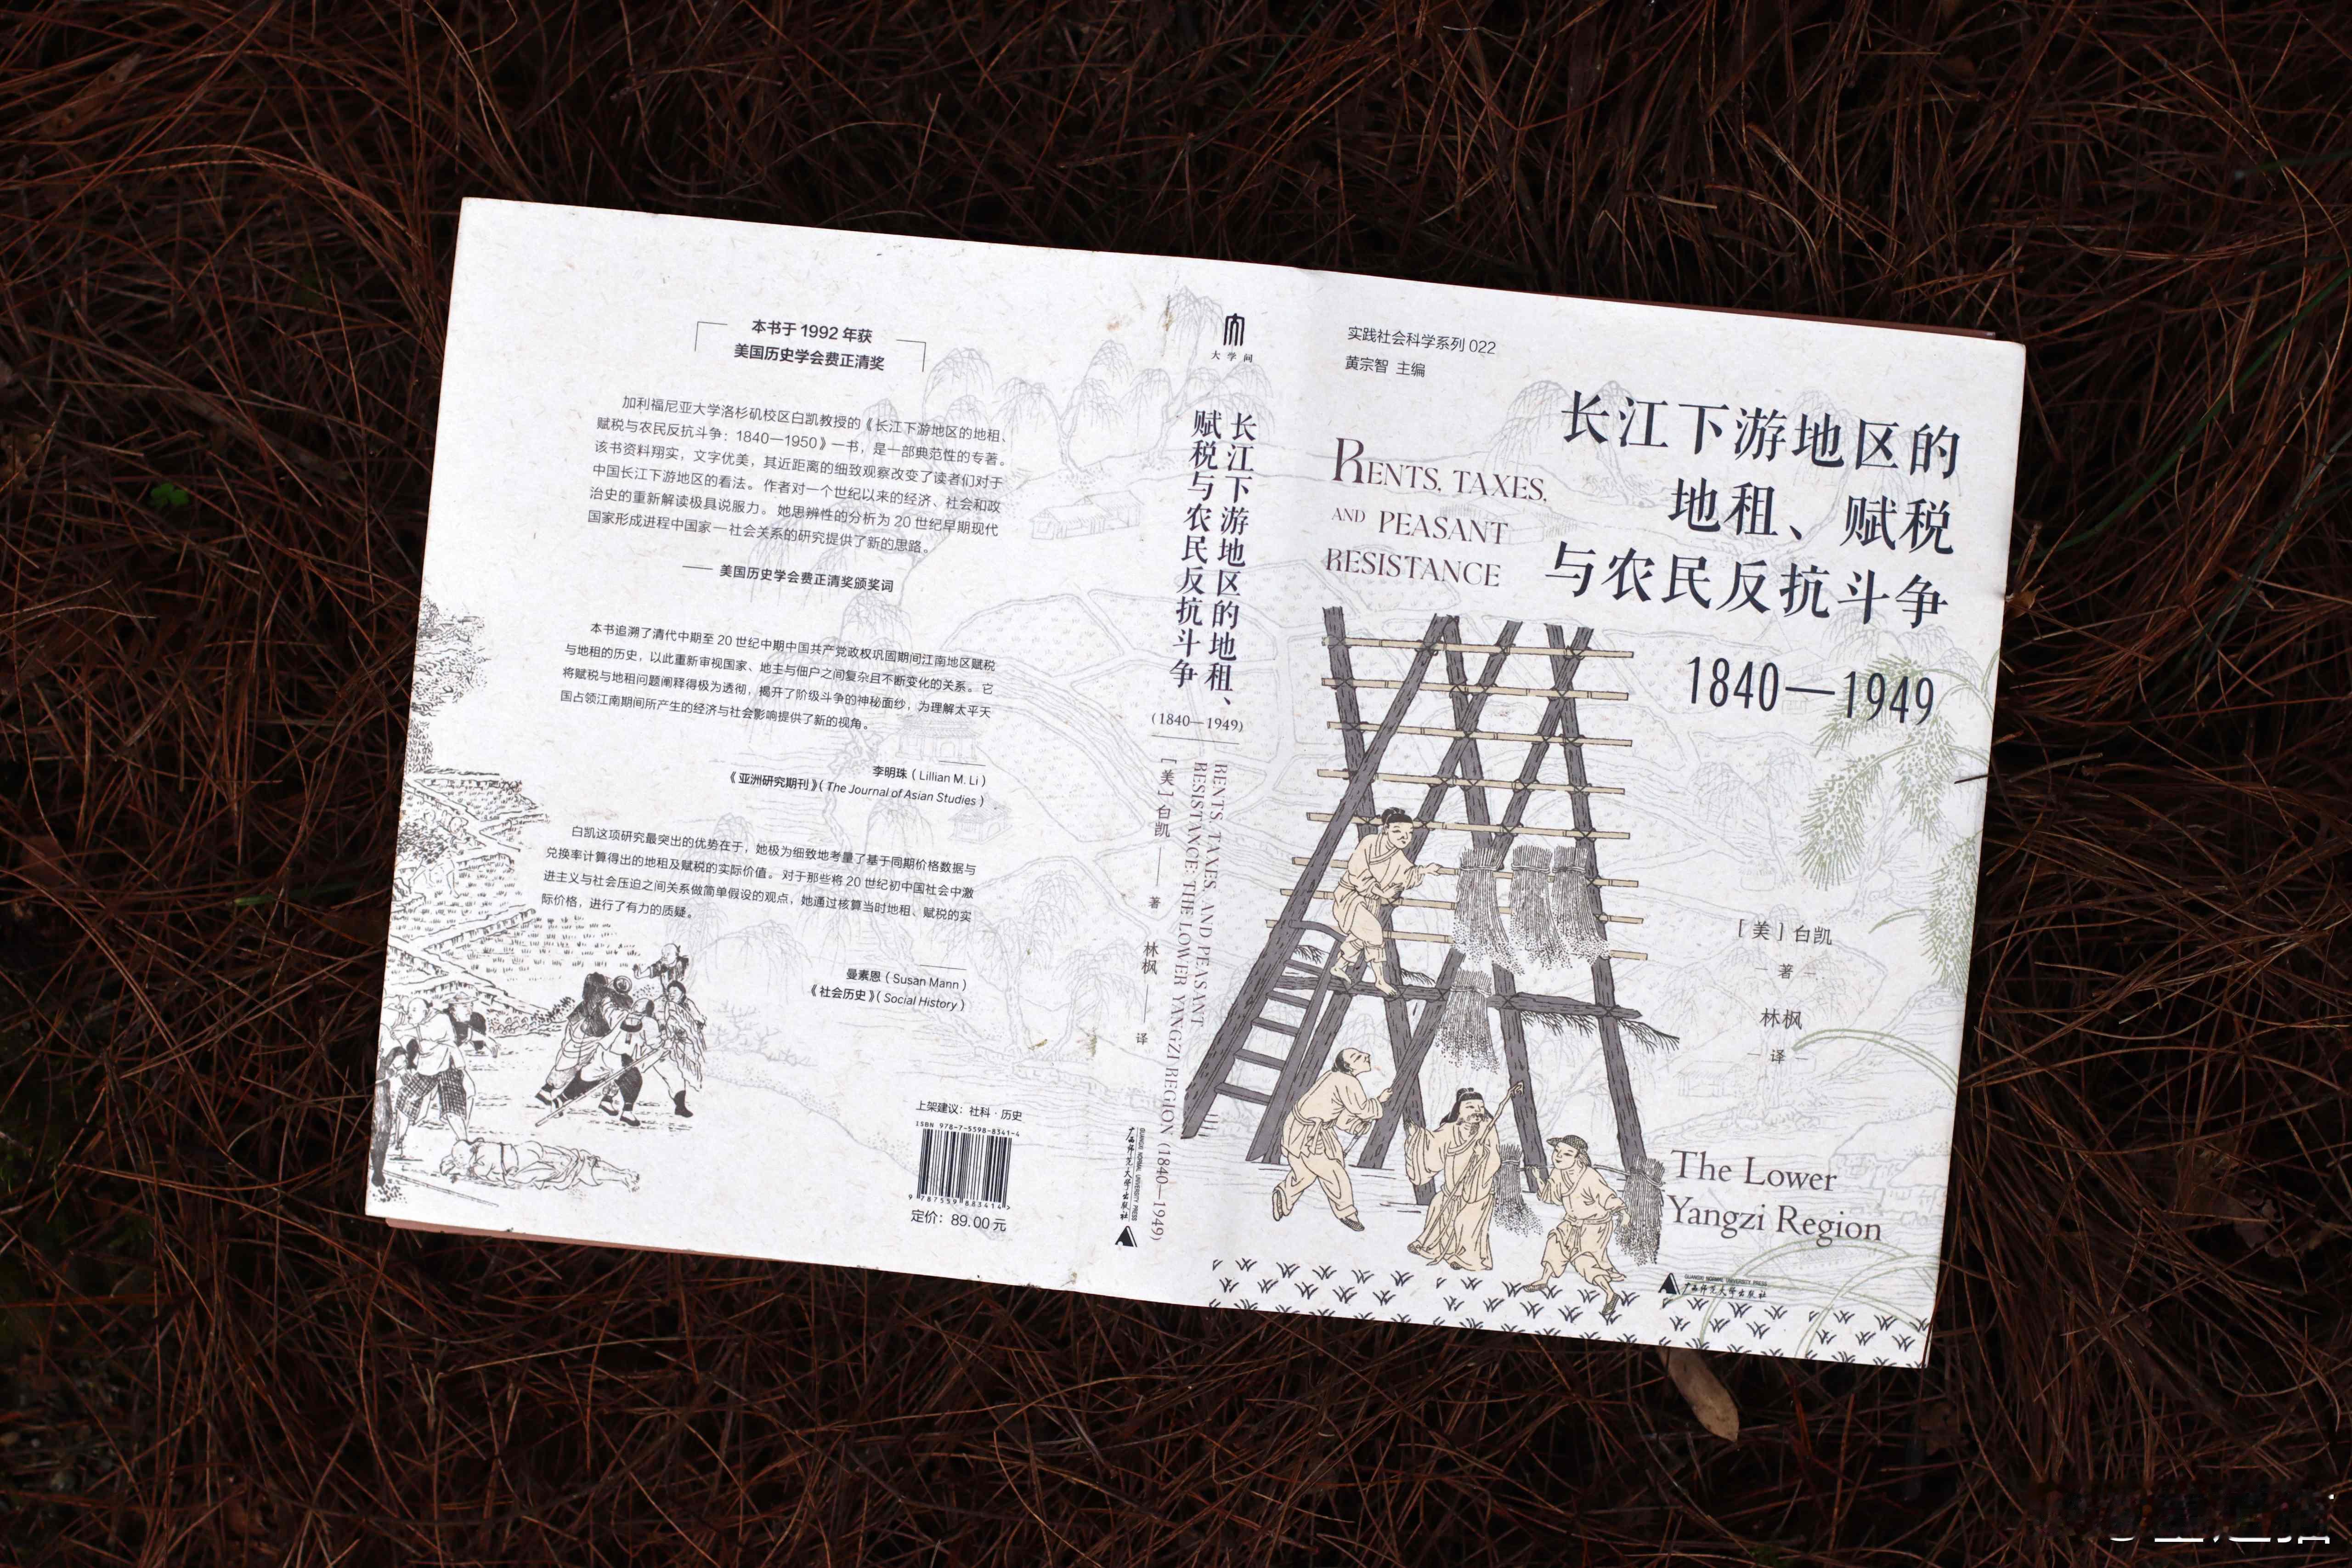 本书于 1992 年获
美国历史学会费正清奖
加利福尼亚大学洛杉矶校区白凯教授的《长江下游地区的地租、
赋税与农民反抗斗争：1840—1950》一书，是一部典范性的专著。
该书资料翔实，文字优美，其近距离的细致观察改变了读者们对于
中国长江下游地区的看法。作者对一个世纪以来的经济、社会和政
治史的重新解读极具说服力。她思辨性的分析为 20 世纪早期现代
国家形成进程中国家—社会关系的研究提供了新的思路。
—— 美国历史学会费正清奖颁奖词
本书追溯了清代中期至 20 世纪中期中国共产党政权巩固期间江南地区赋税
与地租的历史，以此重新审视国家、地主与佃户之间复杂且不断变化的关系。它
将赋税与地租问题阐释得极为透彻，揭开了阶级斗争的神秘面纱，为理解太平天
国占领江南期间所产生的经济与社会影响提供了新的视角。
李明珠（Lillian M. Li）
《亚洲研究期刊》（The Journal of Asian Studies）
白凯这项研究最突出的优势在于，她极为细致地考量了基于同期价格数据与
兑换率计算得出的地租及赋税的实际价值。对于那些将 20 世纪初中国社会中激
进主义与社会压迫之间关系做简单假设的观点，她通过核算当时地租、赋税的实
际价格，进行了有力的质疑。
曼素恩（Susan Mann）
《社会历史》（Social History）
上架建议：社科·历史
ISBN 978-7-5598-8341-4
9 787559 883414 >
定价：89.00 元
大学问
长江下游地区的地租、
赋税与农民反抗斗争
(1840—1949)
RENTS, TAXES, AND PEASANT
RESISTANCE: THE LOWER YANGZI REGION (1840—1949)
［美］白凯——著
林枫——译
GUANGXI NORMAL UNIVERSITY PRESS
广西师范大学出版社
实践社会科学系列 022
黄宗智 主编
长江下游地区的
地租、赋税
与农民反抗斗争
1840—1949
RENTS, TAXES,
AND PEASANT
RESISTANCE
［美］白凯
— 著 —
林枫
— 译 —
The Lower
Yangzi Region
GUANGXI NORMAL UNIVERSITY PRESS
广西师范大学出版社